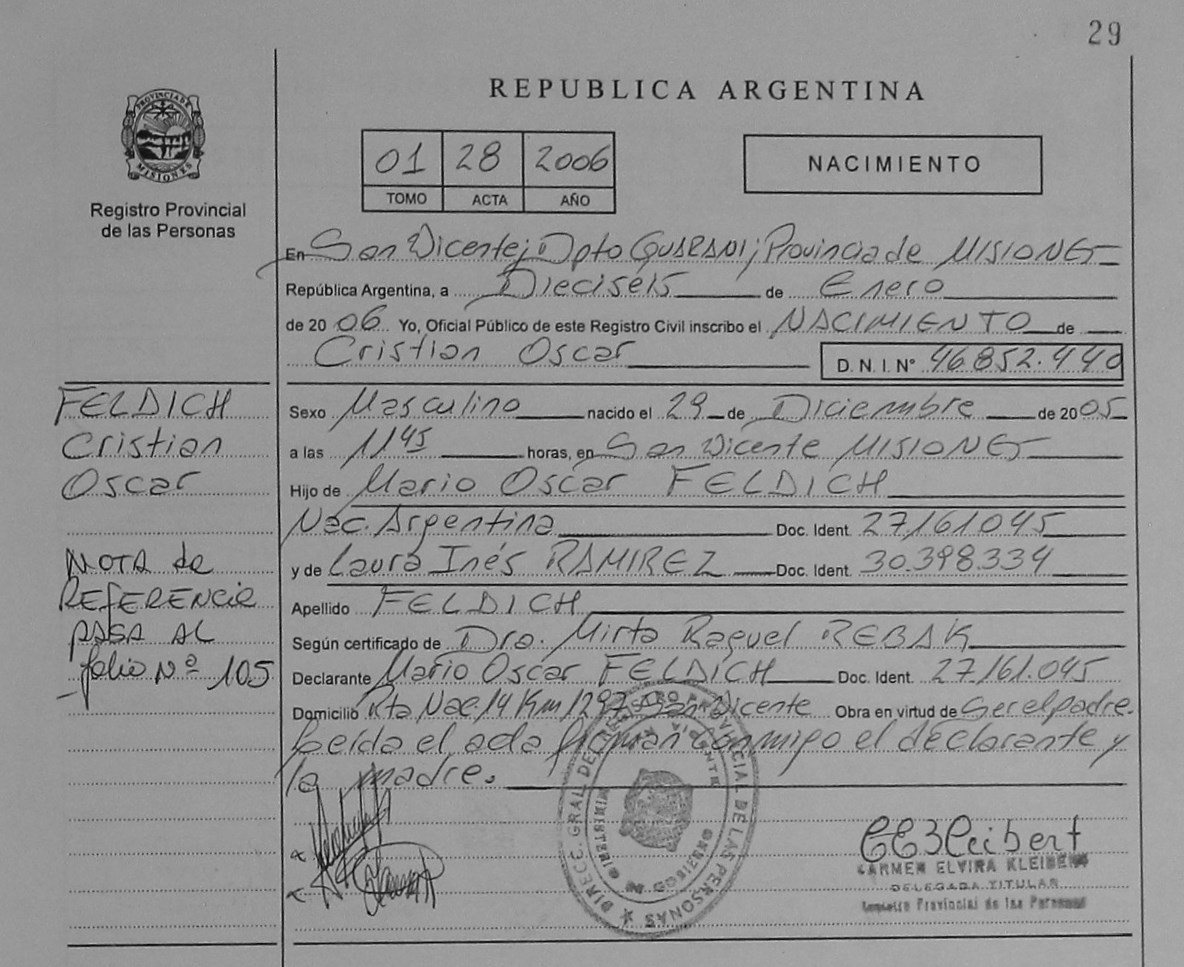 29
REPUBLICA ARGENTINA
PROVINCIA DE
MISIONES
Registro Provincial
de las Personas
01 28 2006
TOMO ACTA AÑO
NACIMIENTO
En San Vicente; Dpto GUARANI; Provincia de MISIONES
República Argentina, a Dieciseis de Enero
de 2006 Yo, Oficial Público de este Registro Civil inscribo el NACIMIENTO de
Cristian Oscar D. N. I. N° 46.852.440
FELDICH
Cristian
Oscar
NOTA de
REFERENCIA
PASA AL
folio Nº 105
Sexo Masculino nacido el 29 de Diciembre de 2005
a las 1145 horas, en San Vicente MISIONES
Hijo de Mario Oscar FELDICH
Nac. Argentina Doc. Ident. 27.161.045
y de Laura Inés RAMIREZ Doc. Ident. 30.398.334
Apellido FELDICH
Según certificado de Dra. Mirta Raquel REBAK
Declarante Mario Oscar FELDICH Doc. Ident. 27.161.045
Domicilio Rta Nac. 14 Km 1297 San Vicente Obra en virtud de Ser el padre.
Leída el acta firman conmigo el declarante y
la madre.
DIRECC. GRAL. DEL REGISTRO PROVINCIAL DE LAS PERSONAS
CARMEN ELVIRA KLEIBERT
DELEGADA TITULAR
Registro Provincial de las Personas